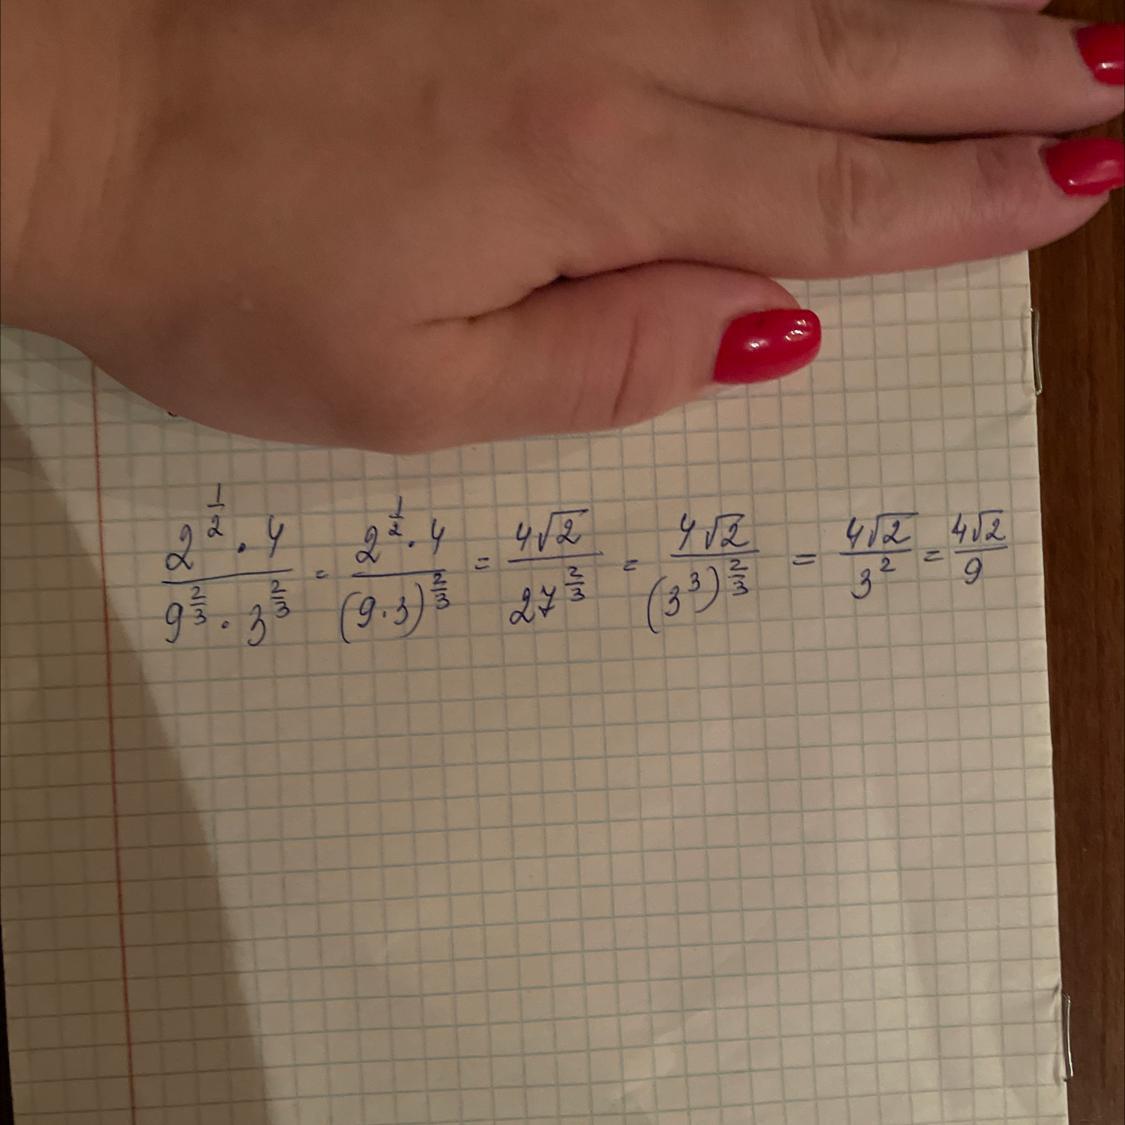 \frac{2^{\frac{1}{2}} \cdot 4}{9^{\frac{2}{3}} \cdot 3^{\frac{2}{3}}} = \frac{2^{\frac{1}{2}} \cdot 4}{(9 \cdot 3)^{\frac{2}{3}}} = \frac{4\sqrt{2}}{27^{\frac{2}{3}}} = \frac{4\sqrt{2}}{(3^3)^{\frac{2}{3}}} = \frac{4\sqrt{2}}{3^2} = \frac{4\sqrt{2}}{9}